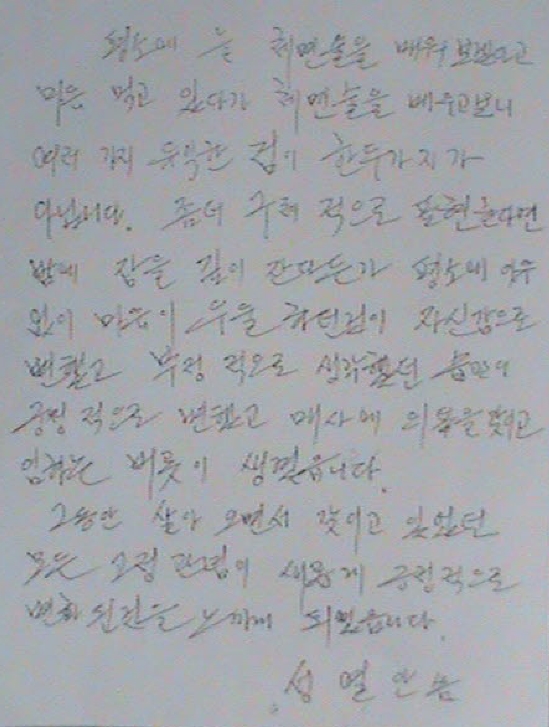 평소에 늘 최면술을 배워보겠다고
마음 먹고 있다가 최면술을 배우고보니
여러 가지 유익한 점이 한두가지가
아닙니다. 좀더 구체적으로 표현한다면
밤에 잠을 깊이 잔다든가 평소에 이유
없이 마음이 우울하던점이 자신감으로
변했고 부정적으로 생각했던
긍정적으로 변했고 매사에 의욕을 갖고
임하는 버릇이 생겼습니다.
그동안 살아 오면서 갖이고 있었던
모든 고정관념이 새롭게 긍정적으로
변화 된것을 느끼게 되었습니다.